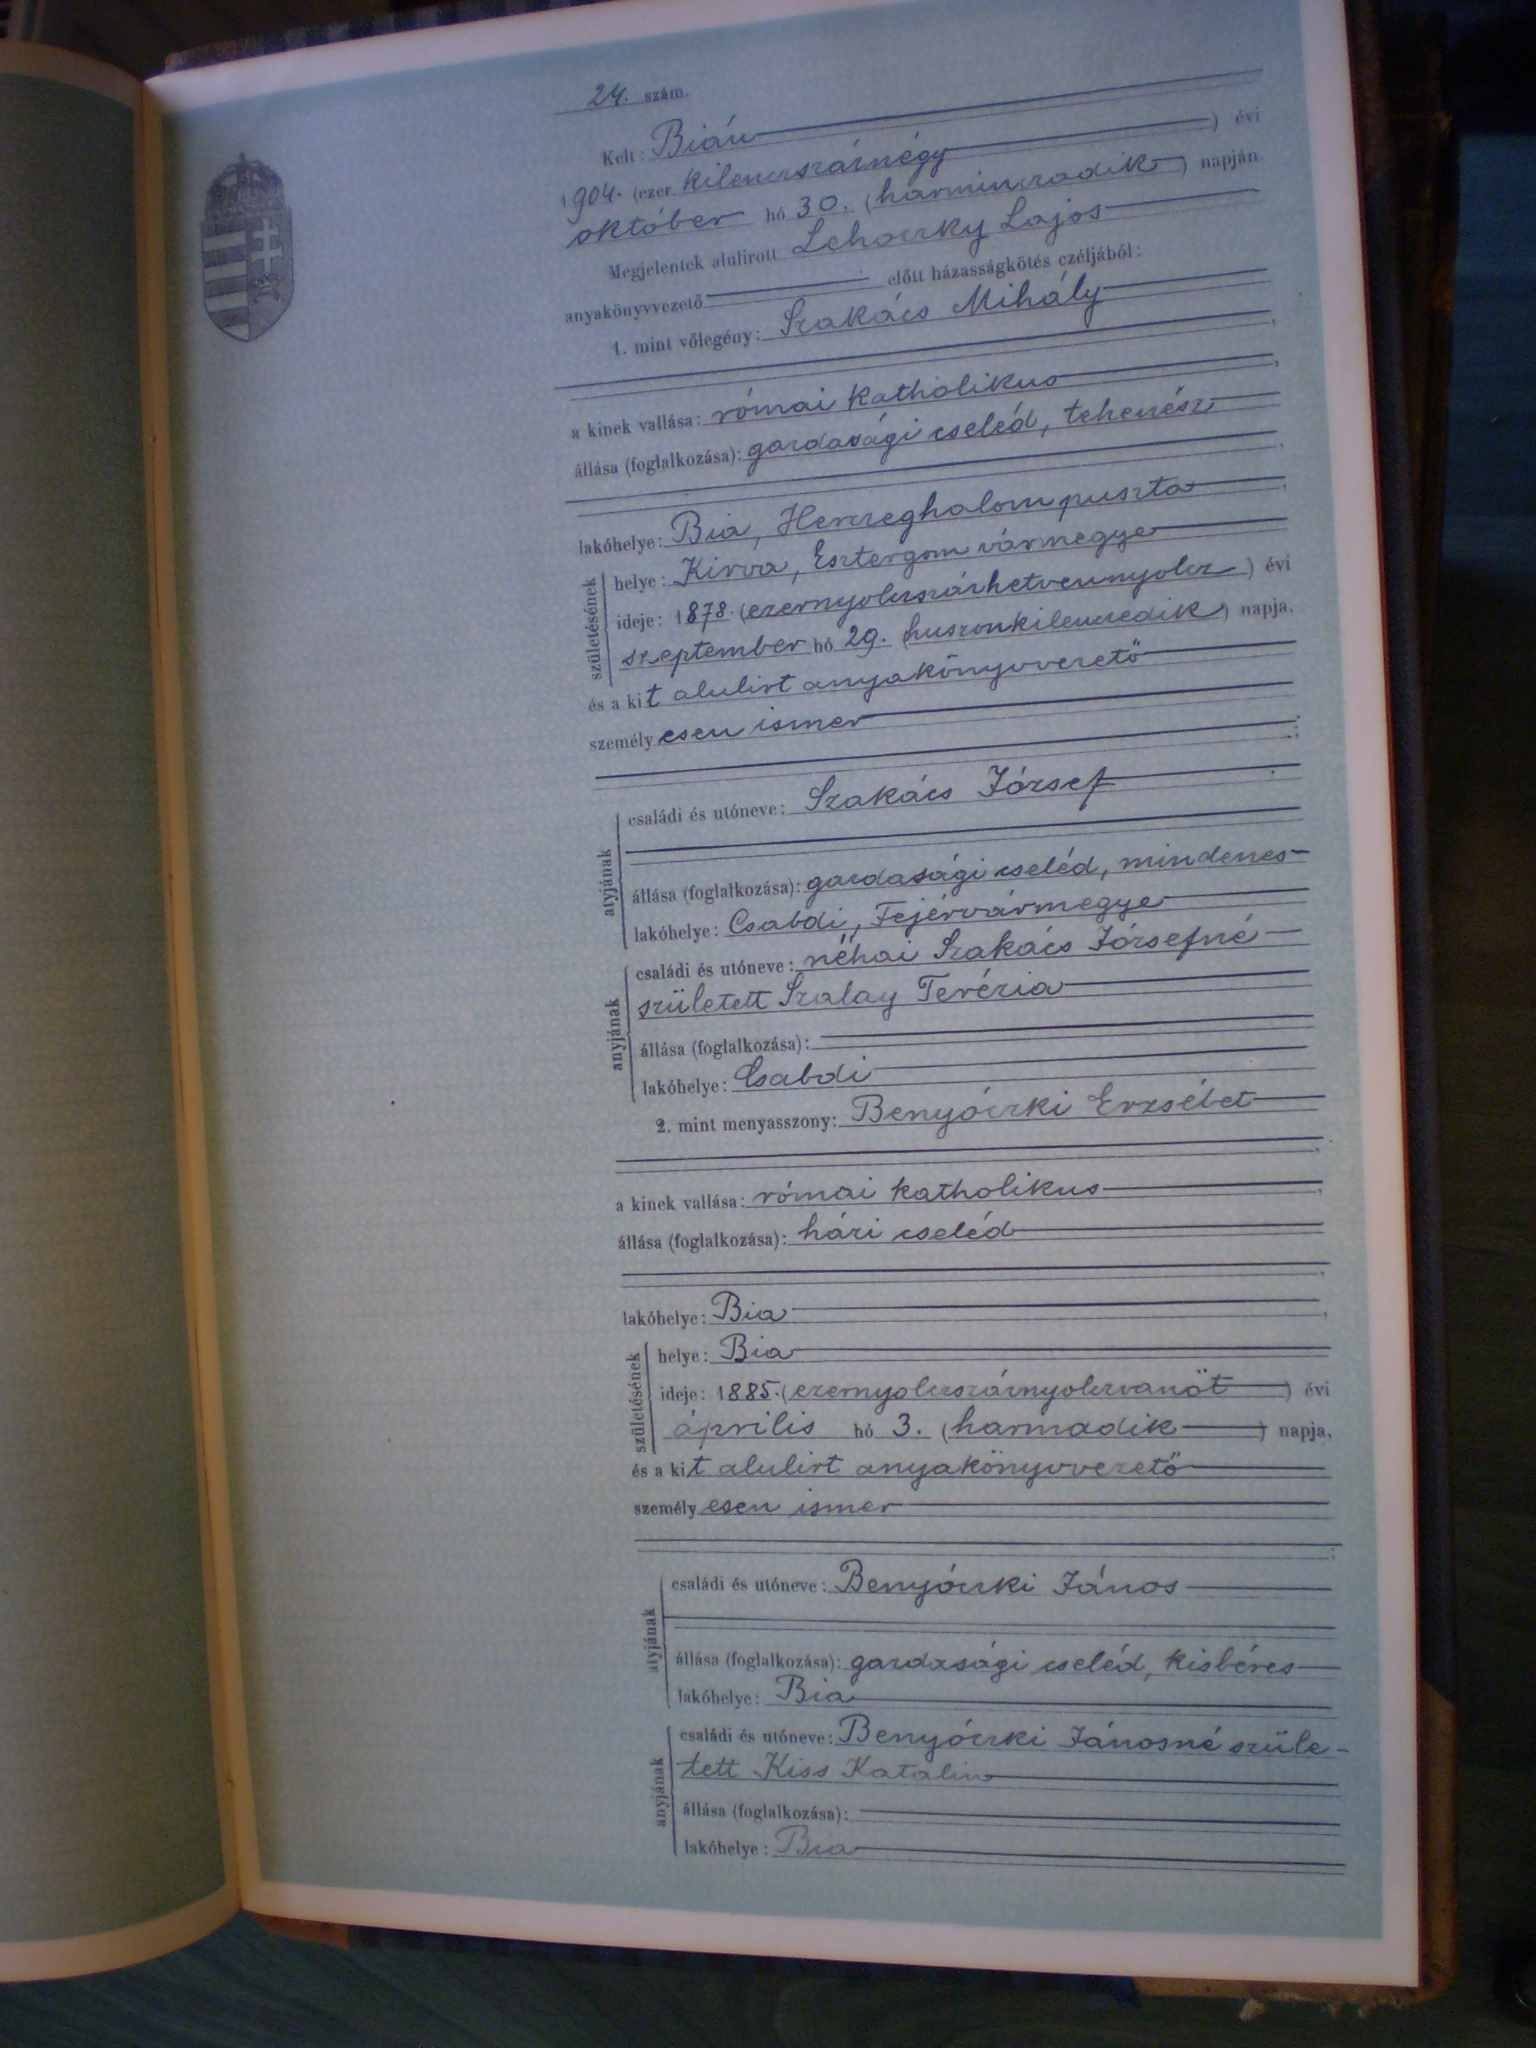 24. szám.
Kelt: Bián
1904. (ezer kilenczszáznégy) évi
október hó 30. (harminczadik) napján.
Megjelentek alulirott Lehoczky Lajos
anyakönyvvezető előtt házasságkötés czéljából:
1. mint vőlegény: Szakács Mihály
a kinek vallása: római katholikus
állása (foglalkozása): gazdasági cseléd, tehenész
lakóhelye: Bia, Herczeghalom puszta
születésének
helye: Kirva, Esztergom vármegye
ideje: 1878. (ezernyolczszázhetvennyolcz) évi
szeptember hó 29. (huszonkilenczedik) napja,
és a kit alulirt anyakönyvvezető
személyesen ismer
atyjának
családi és utóneve: Szakács József
állása (foglalkozása): gazdasági cseléd, mindenes
lakóhelye: Csabdi, Fejérvármegye
anyjának
családi és utóneve: néhai Szakács Józsefné
született Szalay Terézia
állása (foglalkozása):
lakóhelye: Csabdi
2. mint menyasszony: Benyóczki Erzsébet
a kinek vallása: római katholikus
állása (foglalkozása): házi cseléd
lakóhelye: Bia
születésének
helye: Bia
ideje: 1885. (ezernyolczszáznyolczvanöt) évi
április hó 3. (harmadik) napja,
és a kit alulirt anyakönyvvezető
személyesen ismer
atyjának
családi és utóneve: Benyóczki János
állása (foglalkozása): gazdasági cseléd, kisbéres
lakóhelye: Bia
anyjának
családi és utóneve: Benyóczki Jánosné szüle-
tett Kiss Katalin
állása (foglalkozása):
lakóhelye: Bia